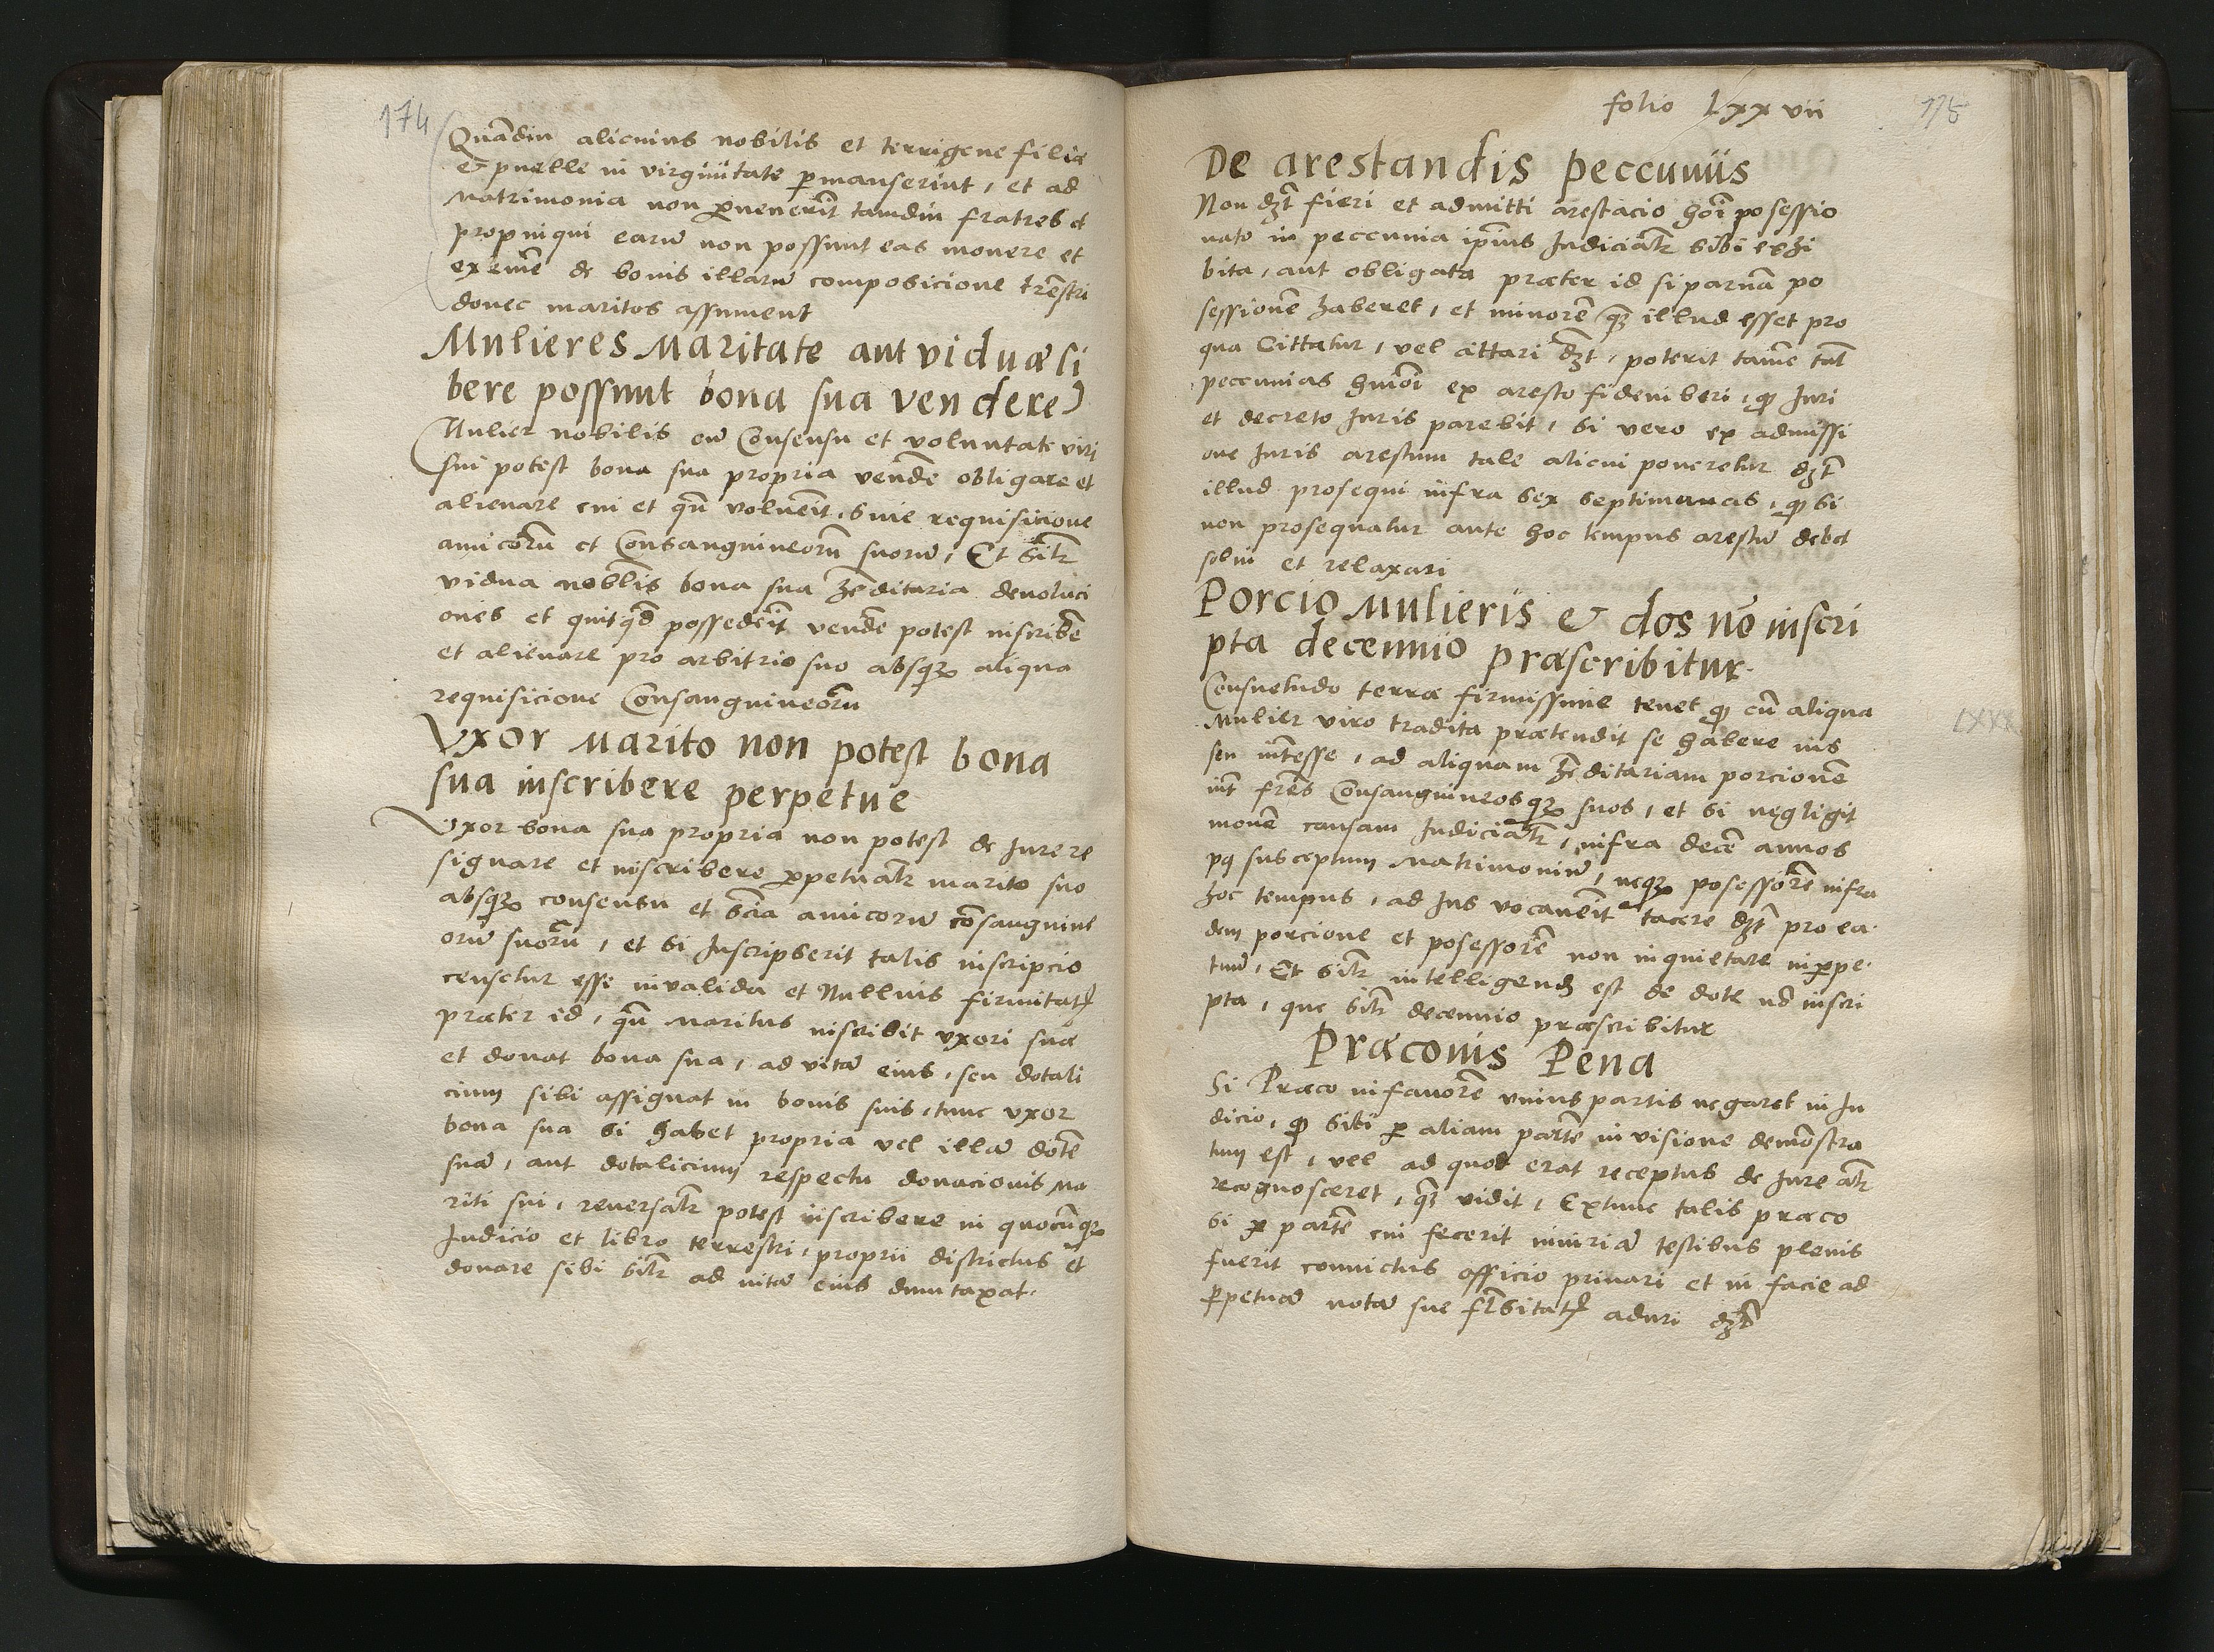 174
Quãdiu alicuius nobilis et terrigene filie
et puelle in virginitate pmanserint, et ad
matrimonia non pvenerĩt tamdiu fratres et
propinqui earũ non possunt eas movere et
eximẽ de bonis illarũ composicione trẽstri
donec maritos assument
Mulieres Maritate aut viduæ li
bere possunt bona sua vendere
Mulier nobilis cũ Consensu et voluntate viri
sui potest bona sua propria vendẽ obligare et
alienare cui et qũ voluẽit, sine requisicione
amicorũ et Consanguineorũ suorũ, Et sĩlr
vidua noblis bona sua hẽditaria devoluci
ones et quitqd possedẽit vendẽ potest inscribẽ
et alienare pro arbitrio suo absqʒ aliqua
requisicione Consanguineorũ
Vxor Marito non potest bona
sua inscribere perpetue
Vxor bona sua propria non potest de Jure re
signare et inscribere ppetualr marito suo
absqʒ consensu et scia amicorũ cõsanguine
orũ suorũ, et si Inscripserit talis inscripcio
censetur esse invalida et Nullius firmitatꝭ
præter id, qũ maritus inscribit vxori suæ
et donat bona sua, ad vitã eius, seu dotali
cium sibi assignat in bonis suis, tunc vxor
bona sua si habet propria vel illã dotẽ
suã, aut dotalicium respectu donacionis ma
riti sui, reversalr potest inscribere in quocũqʒ
Judicio et libro terrestri, proprii districtus et
donare sibi sĩlr ad vitã eius dumtaxat.
folio Lxxvii
175
De arestandis peccuniis
Non dʒt fieri et admitti arestacio hõi posessio
nato in peccunia ipĩus Judicialr sibi exhi
bita, aut obligata præter id si parvã po
sessionẽ haberet, et minorẽ qʒ illud esset pro
qua Cittatur, vel cittari dʒt, poterit tamẽ tal
peccunias hmõi ex aresto fideiuberi, qp Juri
et decreto Juris parebit, si vero ex admissi
one Juris arestum tale alicui poneretur dʒt
illud prosequi infra sex septimanas, qp si
non prosequatur ante hoc tempus arestũ debet
solvi et relaxari
Porcio Mulieris & dos nõ inscri
pta decennio præscribitur.
Consuetudo terræ firmissime tenet qp cũ aliqua
Mulier viro tradita prætendit se habere ius
seu intẽsse, ad aliquam hẽditariam porcionẽ
int frẽs Consanguineosqʒ suos, et si negligit
movẽ causam Judicialr, infra decẽ annos
pꝰ susceptum Matrimoniũ, neqʒ posessorẽ infra
hoc tempus, ad Jus vocavẽit tacere dʒt pro ea
dem porcione et posessorẽ non inquietare inppe
tuũ, Et sĩlr intelligendʒ est de dote nõ inscri
pta, que sĩlr decennio præscribitur
Præconis Pena
Si Præco in favorẽ unius partis negaret in Ju
dicio, qp sibi p aliam partẽ in visione demõstra
tum est, vel ad quod erat receptus de Jure alr
recognosceret, qʒ vidit, Extunc talis præco
si p partẽ cui fecerit iniuriã testibus plenis
fuerit convictus officio privari et in facie ad
ppetuã notã sue flsitatꝭ aduri dʒt